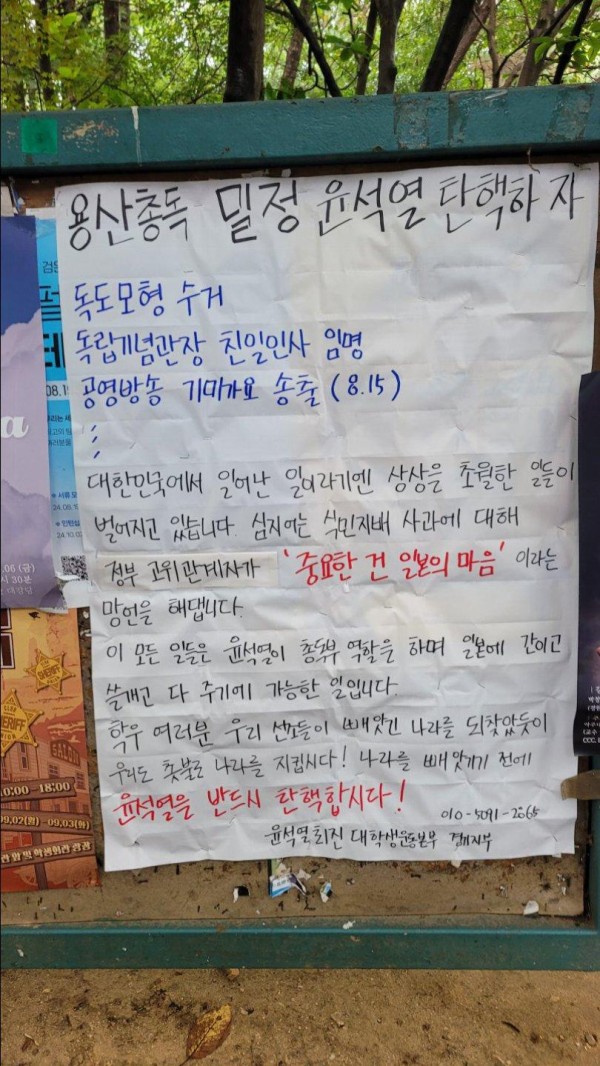 용산총독 밀정 윤석열 탄핵하자
독도모형 수거
독립기념관장 친일인사 임명
공영방송 기미가요 송출 (8.15)
⋮
대한민국에서 일어난 일이라기엔 상상을 초월한 일들이
벌어지고 있습니다. 심지어는 식민지배 사과에 대해
정부 고위관계자가 '중요한 건 일본의 마음' 이라는
망언을 해댑니다.
이 모든 일들은 윤석열이 총독부 역할을 하며 일본에 간이고
쓸개고 다 주기에 가능한 일입니다.
학우 여러분 우리 선조들이 빼앗긴 나라를 되찾았듯이
우리도 촛불로 나라를 지킵시다! 나라를 빼앗기기 전에
윤석열을 반드시 탄핵합시다!
010-5091-2865
윤석열퇴진 대학생운동본부
08.15
a
.06 (금)
시 30분
SHERIFF
SHERIFF
10:00 - 18:00
09.02(월) - 09.03(화)